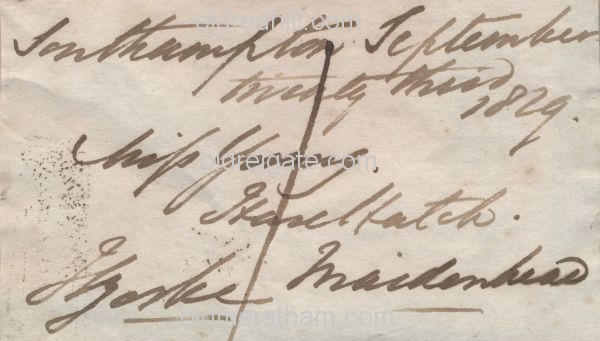 Southampton September
twenty third
1829.
Miss Young.
Hare Hatch.
Maidenhead